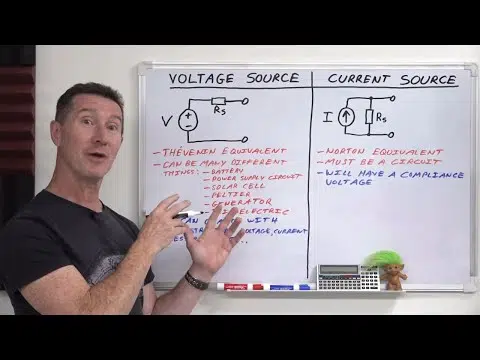 VOLTAGE SOURCE
RS
V
- THÉVENIN EQUIVALENT
- CAN BE MANY DIFFERENT
THINGS: - BATTERY
- POWER SUPPLY CIRCUIT
- SOLAR CELL
- PELTIER
- GENERATOR
ELECTRIC
WITH
VOLTAGE, CURRENT
...
CURRENT SOURCE
I
RS
- NORTON EQUIVALENT
- MUST BE A CIRCUIT
- WILL HAVE A COMPLIANCE
VOLTAGE